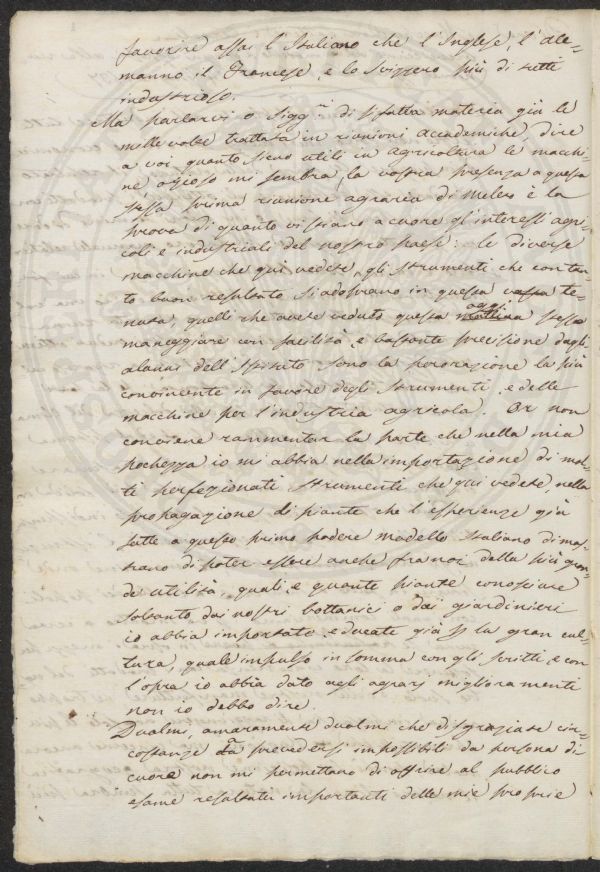 favorire assai l'Italiano che l'Inglese, l'ale-
manno il Francese, e lo Svizzero più di tutti
industrioso.
Ma parlarvi o Sigg.ri di sì fatta materia già le
mille volte trattata in riunioni accademiche, dire
a voi quanto sieno utili in agricoltura le macchi-
ne ozioso mi sembra, la vostra presenza a questa
stessa prima riunione agraria di Meleto è la
prova di quanto vi stiano a cuore gl'interessi agri-
coli e industriali del nostro paese: le diverse
macchine che qui vedete, gli strumenti che con tan-
to buon resultato si adoprano in questa te-
nuta, quelli che avete veduto questa mattina oggi stesso
maneggiare con facilità, e bastante precisione dagli
alunni dell'Istituto sono la perorazione la più
convincente in favore degli strumenti, e delle
macchine per l'industria agricola. Or non
conviene rammentar la parte che nella mia
pochezza io mi abbia nella importazione di mol-
ti perfezionati strumenti che qui vedete, nella
propagazione di piante che l'esperienze già
fatte a questo primo podere modello Italiano dimos-
trano di poter essere anche fra noi della più gran-
de utilità, quali, e quante piante conosciute
soltanto dai nostri bottanici o dai giardinieri
io abbia importato, educate già p la gran cul-
tura, quale impulso in somma con gli scritti, e con
l'opra io abbia dato agli agrarj miglioramenti
non io debbo dire.
Duolmi, amaramente duolmi che disgraziate cir-
costanze da prevedersi impossibili da persona di
cuore non mi permettano di offrire al pubblico
esame resultati importanti delle mie proprie